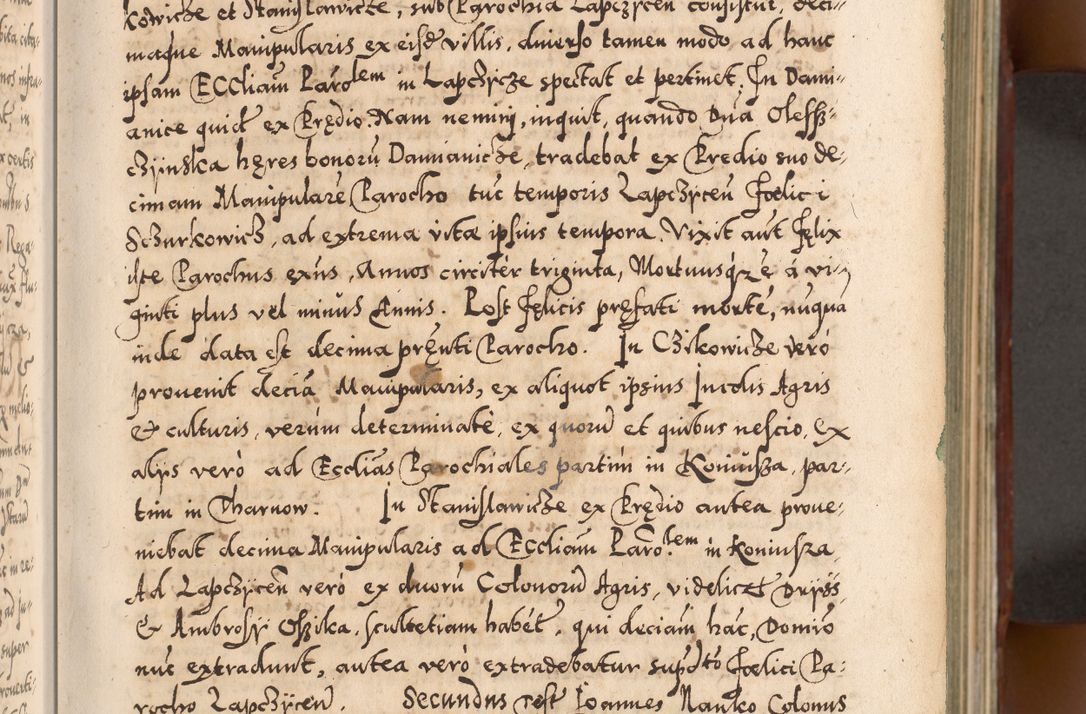 kowicze et Stanislawicze, sub Parochia Lapczycen consistut, deci-
maque Manipularis ex eisdē villis, diuerso tamen modo ad hanc
ipsam ECCliam Paro<sup>lem</sup> in Lapczycze spectat et pertinet. In Dami-
anice quidē ex Prędio. Nam nemini, inquit, quando Dna Olessz-
czijnska hęres bonorū Damianicze, tradebat ex Predio suo de-
cimam Manipularē Parocho tuc temporis Lapczyceñ Foelici
Sczurkowicz, ad extrema vitæ ipsius tempora. Vixit aut Fęlix
iste Parochus ex͞ns, Annos circitèr triginta, Mortuus à vi-
ginti plus vel minùs Annis. Post Fęlicis pręfati mortē, nuquā
inde data est decima pręnti Parocho. In Czikowicze verò
prouenit deciā Manipularis, ex aliquot ipsius Incolis Agris
& culturis, verùm determinatè, ex quorū et quibus nescio, Ex
alijs verò ad Ecclias Parochiales partim in Koniusza, par-
tim in Tharnow. In Stanislawicze ex Prędio antea proue-
niebat decima Manipularis ad ECcliam Paro<sup>lem</sup> in Koniusza
Ad Lapczyceñ verò ex duorū Colonorū Agris, videlicet
& Ambrosij Oszika, scultetiam habēt, qui deciam hāc, Domio
nuc extradunt, antea verò extradebatur supdto Foelici Pa-
rocho Lapczyceñ. Secundus test Joannes Nanko Colonus